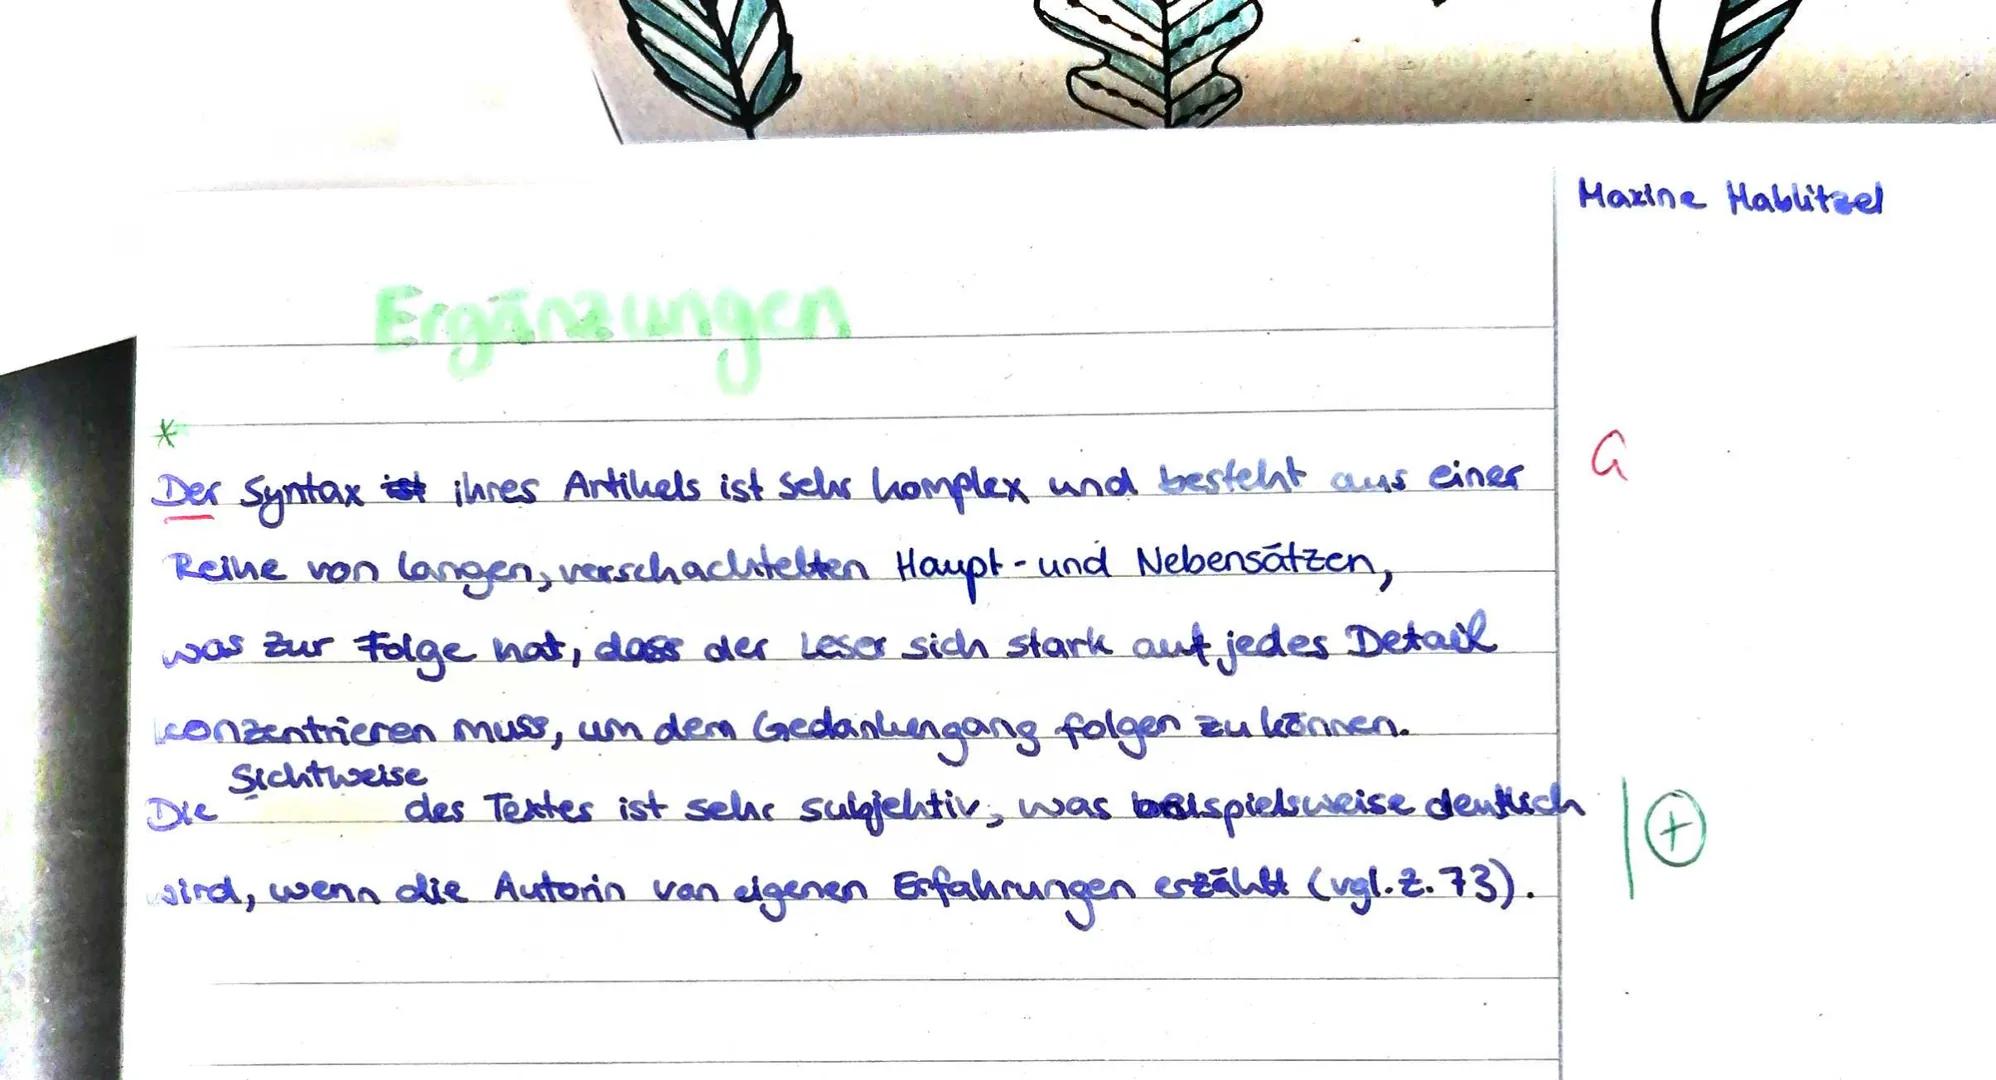 Maxine Hablitzel
Ergänzungen
*
Der Syntax ist ihres Artikels ist sehr komplex und besteht aus einer
G
Reihe von langen, verschachtelten Haupt- und Nebensätzen,
was zur Folge hat, dass der Leser sich stark auf jedes Detail
konzentrieren muss, um dem Gedankengang folgen zu können.
Sichtweise
Die des Textes ist sehr subjektiv, was beispielsweise deutlich
+
wird, wenn die Autorin von eigenen Erfahrungen erzählt (vgl. Z. 73).